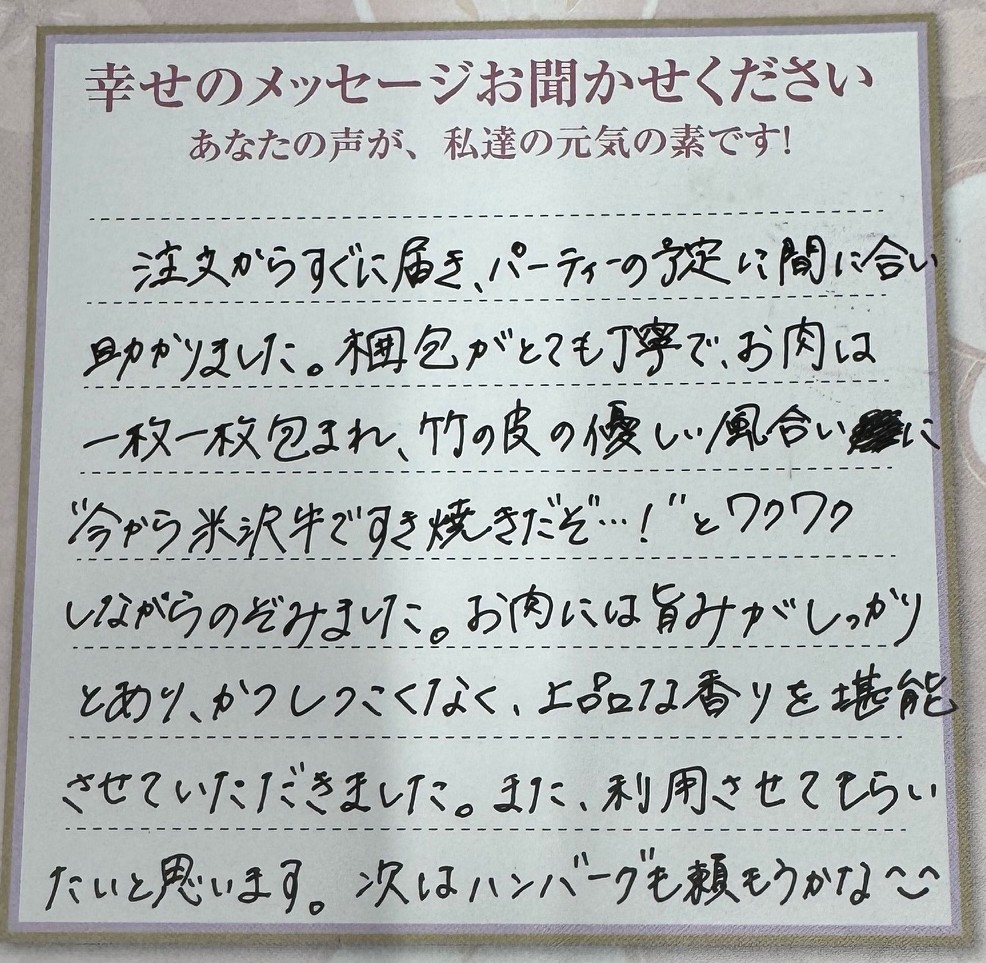 幸せのメッセージお聞かせください
あなたの声が、私達の元気の素です!
注文からすぐに届き、パーティーの予定に間に合い
助かりました。梱包がとても丁寧で、お肉は
一枚一枚包まれ、竹の皮の優しい風合いに
"今から米沢牛ですき焼きだぞ…!"とワクワク
しながらのぞみました。お肉には旨みがしっかり
とあり、かつしつこくなく、上品な香りを堪能
させていただきました。また、利用させてもらい
たいと思います。次はハンバーグも頼もうかな〜